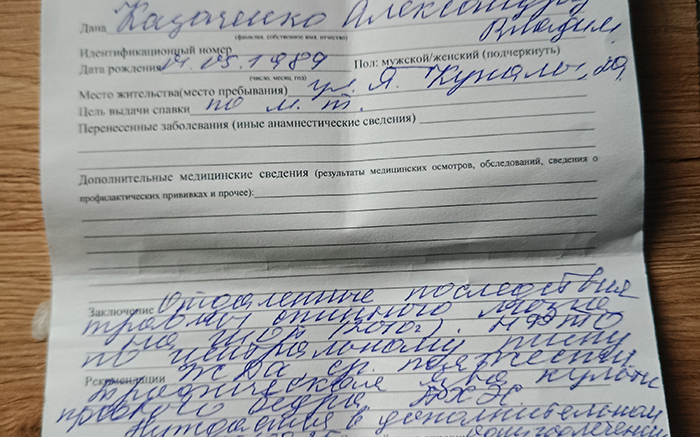 Дана Казаченко Александру
(фамилия, собственное имя, отчество)
Владим
Идентификационный номер
Дата рождения 14.05.1989 Пол: мужской/женский (подчеркнуть)
(число, месяц, год)
Место жительства(место пребывания) ул. Я. Купалы, 20,
Цель выдачи справки по м. т.
Перенесенные заболевания (иные анамнестические сведения)
Дополнительные медицинские сведения (результаты медицинских осмотров, обследований, сведения о
профилактических прививках и прочее):
Заключение Отдаленные последствия
травмы спинного мозга
на (2010г). НФТО
по центральному типу
ЖДА ср. тяжести
Рекомендации Трофическая язва культи
правого бедра.
Нуждается в дополнительном